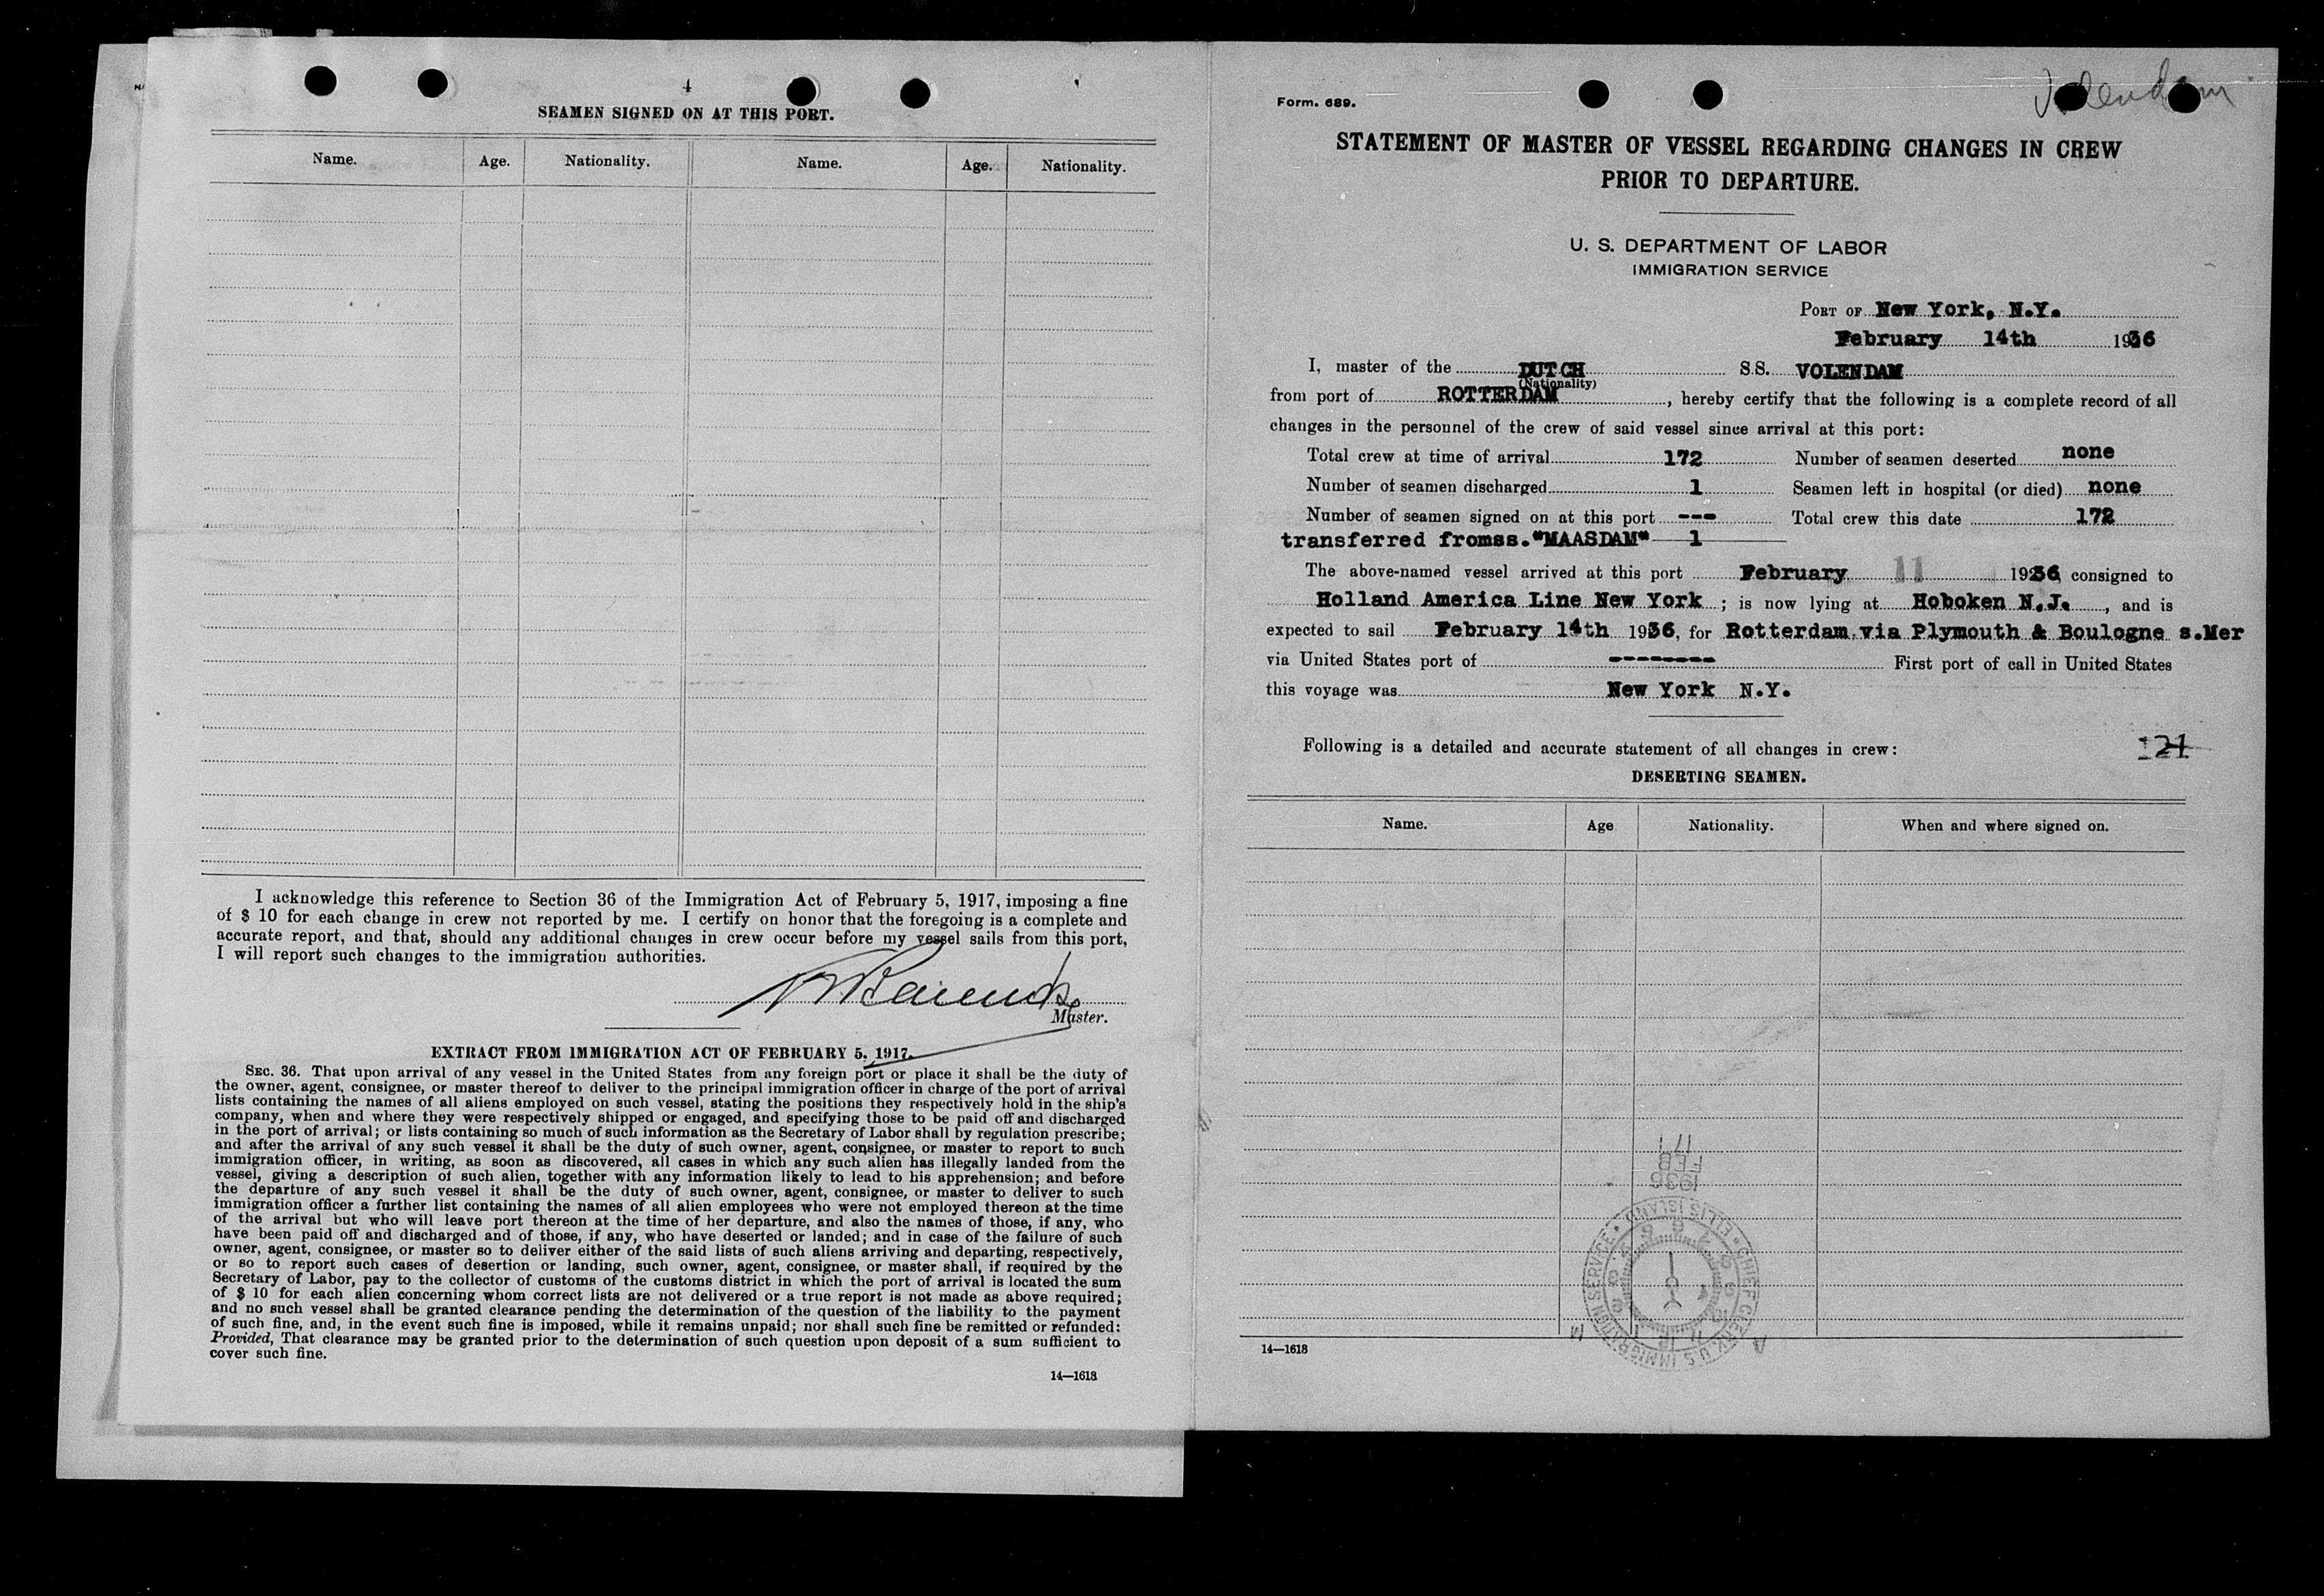 4
SEAMEN SIGNED ON AT THIS PORT.
Name. Age. Nationality. Name. Age. Nationality.
I acknowledge this reference to Section 36 of the Immigration Act of February 5, 1917, imposing a fine
of $ 10 for each change in crew not reported by me. I certify on honor that the foregoing is a complete and
accurate report, and that, should any additional changes in crew occur before my vessel sails from this port,
I will report such changes to the immigration authorities.
Master.
EXTRACT FROM IMMIGRATION ACT OF FEBRUARY 5, 1917.
SEC. 36. That upon arrival of any vessel in the United States from any foreign port or place it shall be the duty of
the owner, agent, consignee, or master thereof to deliver to the principal immigration officer in charge of the port of arrival
lists containing the names of all aliens employed on such vessel, stating the positions they respectively hold in the ship's
company, when and where they were respectively shipped or engaged, and specifying those to be paid off and discharged
in the port of arrival; or lists containing so much of such information as the Secretary of Labor shall by regulation prescribe;
and after the arrival of any such vessel it shall be the duty of such owner, agent, consignee, or master to report to such
immigration officer, in writing, as soon as discovered, all cases in which any such alien has illegally landed from the
vessel, giving a description of such alien, together with any information likely to lead to his apprehension; and before
the departure of any such vessel it shall be the duty of such owner, agent, consignee, or master to deliver to such
immigration officer a further list containing the names of all alien employees who were not employed thereon at the time
of the arrival but who will leave port thereon at the time of her departure, and also the names of those, if any, who
have been paid off and discharged and of those, if any, who have deserted or landed; and in case of the failure of such
owner, agent, consignee, or master so to deliver either of the said lists of such aliens arriving and departing, respectively,
or so to report such cases of desertion or landing, such owner, agent, consignee, or master shall, if required by the
Secretary of Labor, pay to the collector of customs of the customs district in which the port of arrival is located the sum
of $ 10 for each alien concerning whom correct lists are not delivered or a true report is not made as above required;
and no such vessel shall be granted clearance pending the determination of the question of the liability to the payment
of such fine, and, in the event such fine is imposed, while it remains unpaid; nor shall such fine be remitted or refunded:
Provided, That clearance may be granted prior to the determination of such question upon deposit of a sum sufficient to
cover such fine.
14—1618
Volendam
Form. 689.
STATEMENT OF MASTER OF VESSEL REGARDING CHANGES IN CREW
PRIOR TO DEPARTURE.
U. S. DEPARTMENT OF LABOR
IMMIGRATION SERVICE
PORT OF New York, N.Y.
February 14th 1936
I, master of the DUTCH S.S. VOLENDAM
(Nationality)
from port of ROTTERDAM, hereby certify that the following is a complete record of all
changes in the personnel of the crew of said vessel since arrival at this port:
Total crew at time of arrival 172 Number of seamen deserted none
Number of seamen discharged 1 Seamen left in hospital (or died) none
Number of seamen signed on at this port --- Total crew this date 172
transferred fromss."MAASDAM" 1
The above-named vessel arrived at this port February 11 1936, consigned to
Holland America Line New York ; is now lying at Hoboken N.J. , and is
expected to sail February 14th 1936, for Rotterdam.via Plymouth & Boulogne s.Mer
via United States port of -------- First port of call in United States
this voyage was New York N.Y.
Following is a detailed and accurate statement of all changes in crew:
121
DESERTING SEAMEN.
Name. Age Nationality. When and where signed on.
171
FEB
1936
CHIEF CLERK, U.S IMMIGRATION SERVICE • ELLIS ISLAND •
14—1618